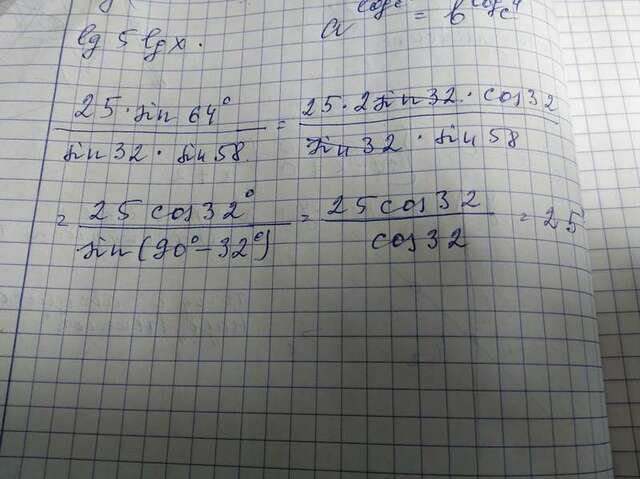 lg 5 lg x.
a^{log_c} = b^{log_c a}
\frac{25 · sin 64°}{sin 32 · sin 58} = \frac{25 · 2 sin 32 · cos 32}{sin 32 · sin 58}
= \frac{25 cos 32°}{sin(90° - 32°)} = \frac{25 cos 32}{cos 32} = 25